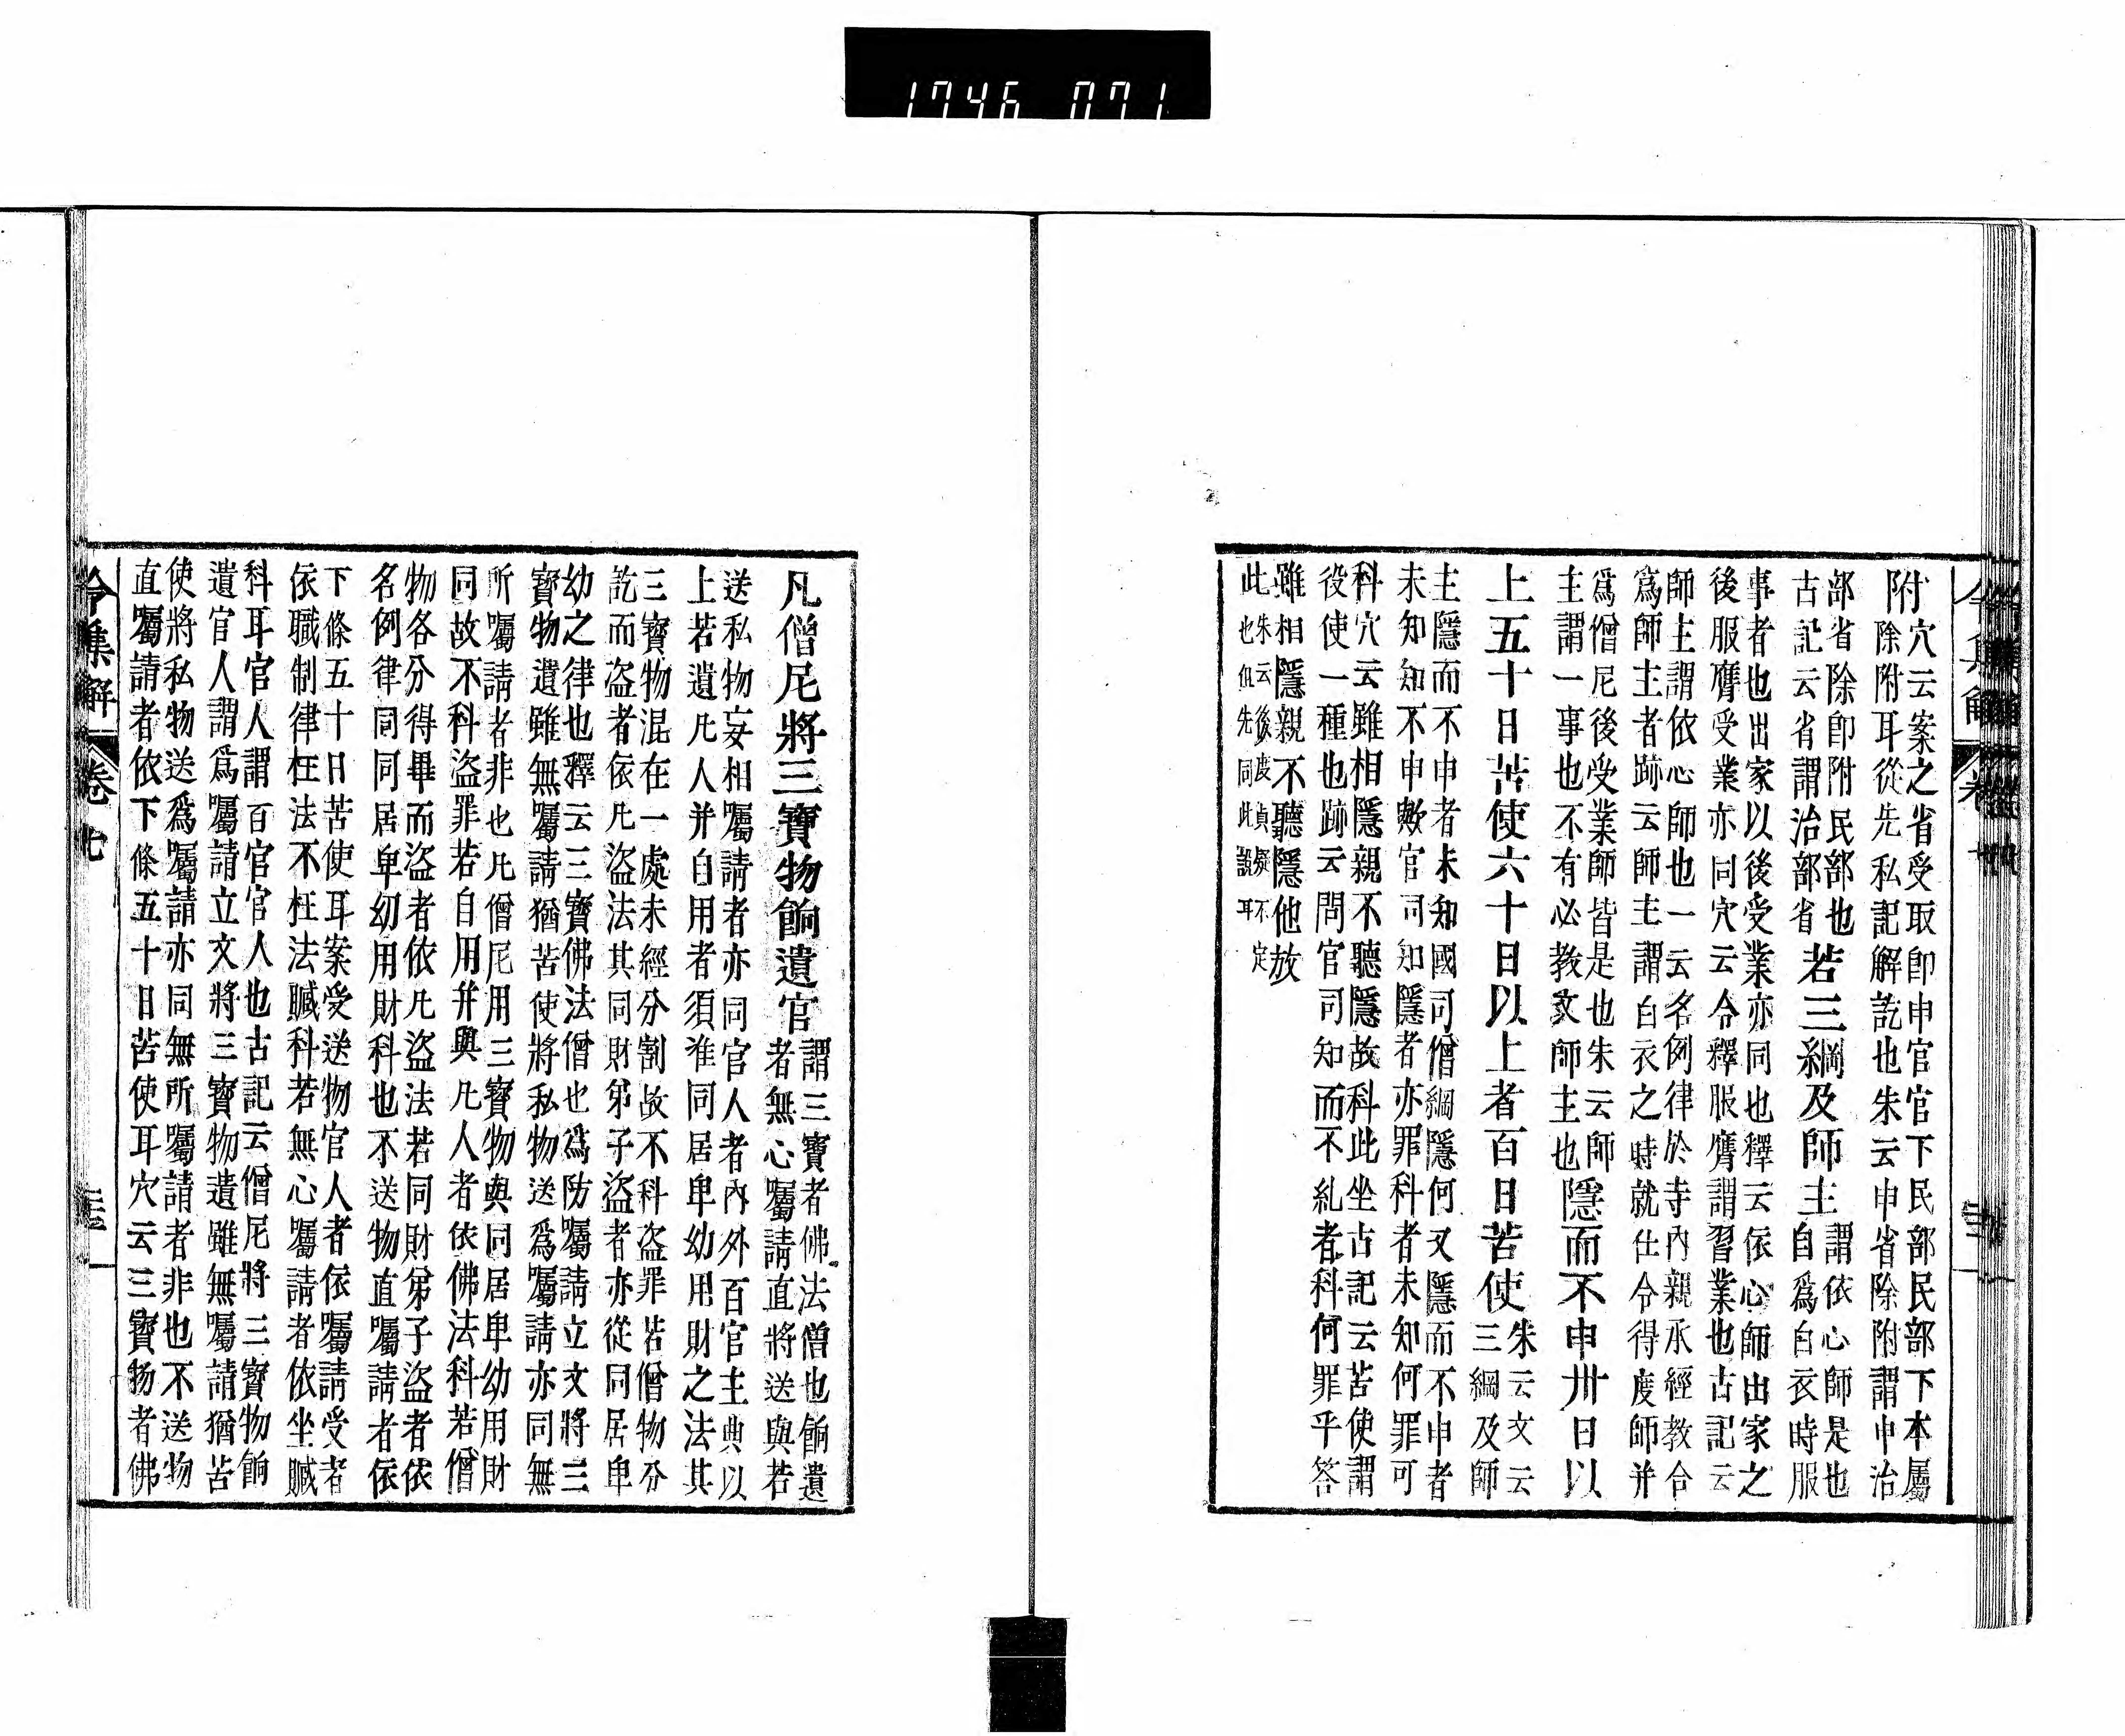 1746 071
附穴云案之省受取卽申官官下民部民部下本屬
除附耳從先私記解訖也朱云申省除附謂申治
部省除卽附民部也
古記云省謂治部省
若三綱及師主
謂依心師是也
自爲白衣時服
事者也出家以後受業亦同也釋云依心師出家之
後服膺受業亦同穴云令釋服膺謂習業也古記云
師主謂依心師也一云名例律於寺內親承經教合
爲師主者跡云師主謂白衣之時就仕令得度師并
爲僧尼後受業師皆是也朱云師
主謂一事也不有必教文師主也
隱而不申卅日以
上五十日苦使六十日以上者百日苦使
朱云文云
三綱及師
主隱而不申者未知國司僧綱隱何又隱而不申者
未知知不申歟官司知隱者亦罪科者未知何罪可
科穴云雖相隱親不聽隱故科此坐古記云苦使謂
役使一種也跡云問官司知而不糺者科何罪乎答
雖相隱親不聽隱他放
此
朱云後度貞癡不定
也但先同此說耳
凡僧尼將三寶物餉遺官
謂三寶者佛法僧也餉遺
者無心囑請直將送與若
送私物妄相囑請者亦同官人者內外百官主典以
上若遺凡人并自用者須准同居卑幼用財之法其
三寶物混在一處未經分割故不科盜罪若僧物分
訖而盜者依凡盜法其同財弟子盜者亦從同居卑
幼之律也釋云三寶佛法僧也爲防囑請立文將三
寶物遺雖無囑請猶苦使將私物送爲囑請亦同無
所囑請者非也凡僧尼用三寶物與同居卑幼用財
同故不科盜罪若自用并與凡人者依佛法科若僧
物各分得畢而盜者依凡盜法若同財弟子盜者依
名例律同同居卑幼用財科也不送物直囑請者依
下條五十日苦使耳案受送物官人者依囑請受者
依職制律枉法不枉法贓科若無心囑請者依坐贓
科耳官人謂百官官人也古記云僧尼將三寶物餉
遺官人謂爲囑請立文將三寶物遺雖無囑請猶苦
使將私物送爲囑請亦同無所囑請者非也不送物
直囑請者依下條五十日苦使耳穴云三寶物者佛
令集解 卷七